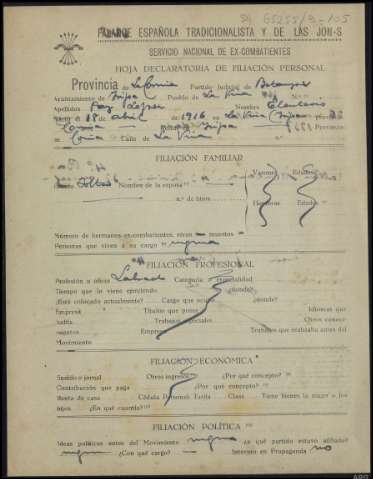 FALANGE ESPAÑOLA TRADICIONALISTA Y DE LAS JON-S
SERVICIO NACIONAL DE EX-COMBATIENTES
HOJA DECLARATORIA DE FILIACIÓN PERSONAL
Provincia de La Coruña Partido Judicial de
Ayuntamiento de Pueblo de La
Apellidos Nombre Eleuterio
el 18 de abril de 1916 en La
Provincia
Calle de La
FILIACIÓN FAMILIAR
Estado Soltero Nombre de la esposa
Varones Edades
n.º de hijos
Hembras Edades
Número de hermanos ex-combatientes, vivos muertos
Personas que viven a su cargo ninguna
FILIACIÓN PROFESIONAL
Profesión u oficio Labrador Categoría o especialidad
Tiempo que lo viene ejerciendo ¿dónde?
¿Está colocado actualmente? Cargo que ocupa ¿dónde?
Empresa Títulos que posee Idiomas que
habla Trabajos especiales Otros conoci-
mientos Empresa Trabajos que realizaba antes del
Movimiento
FILIACIÓN ECONÓMICA
Sueldo o jornal Otros ingresos ¿Por qué concepto?
Contribución que paga ¿Por qué concepto?
Renta de casa Cédula Personal: Tarifa Clase Tiene bienes la mujer o los
hijos ¿En qué cuantía?
FILIACIÓN POLÍTICA
Ideas políticas antes del Movimiento ninguna ¿a qué partido estuvo afiliado?
ninguno ¿Con qué cargo? Intervino en Propaganda no